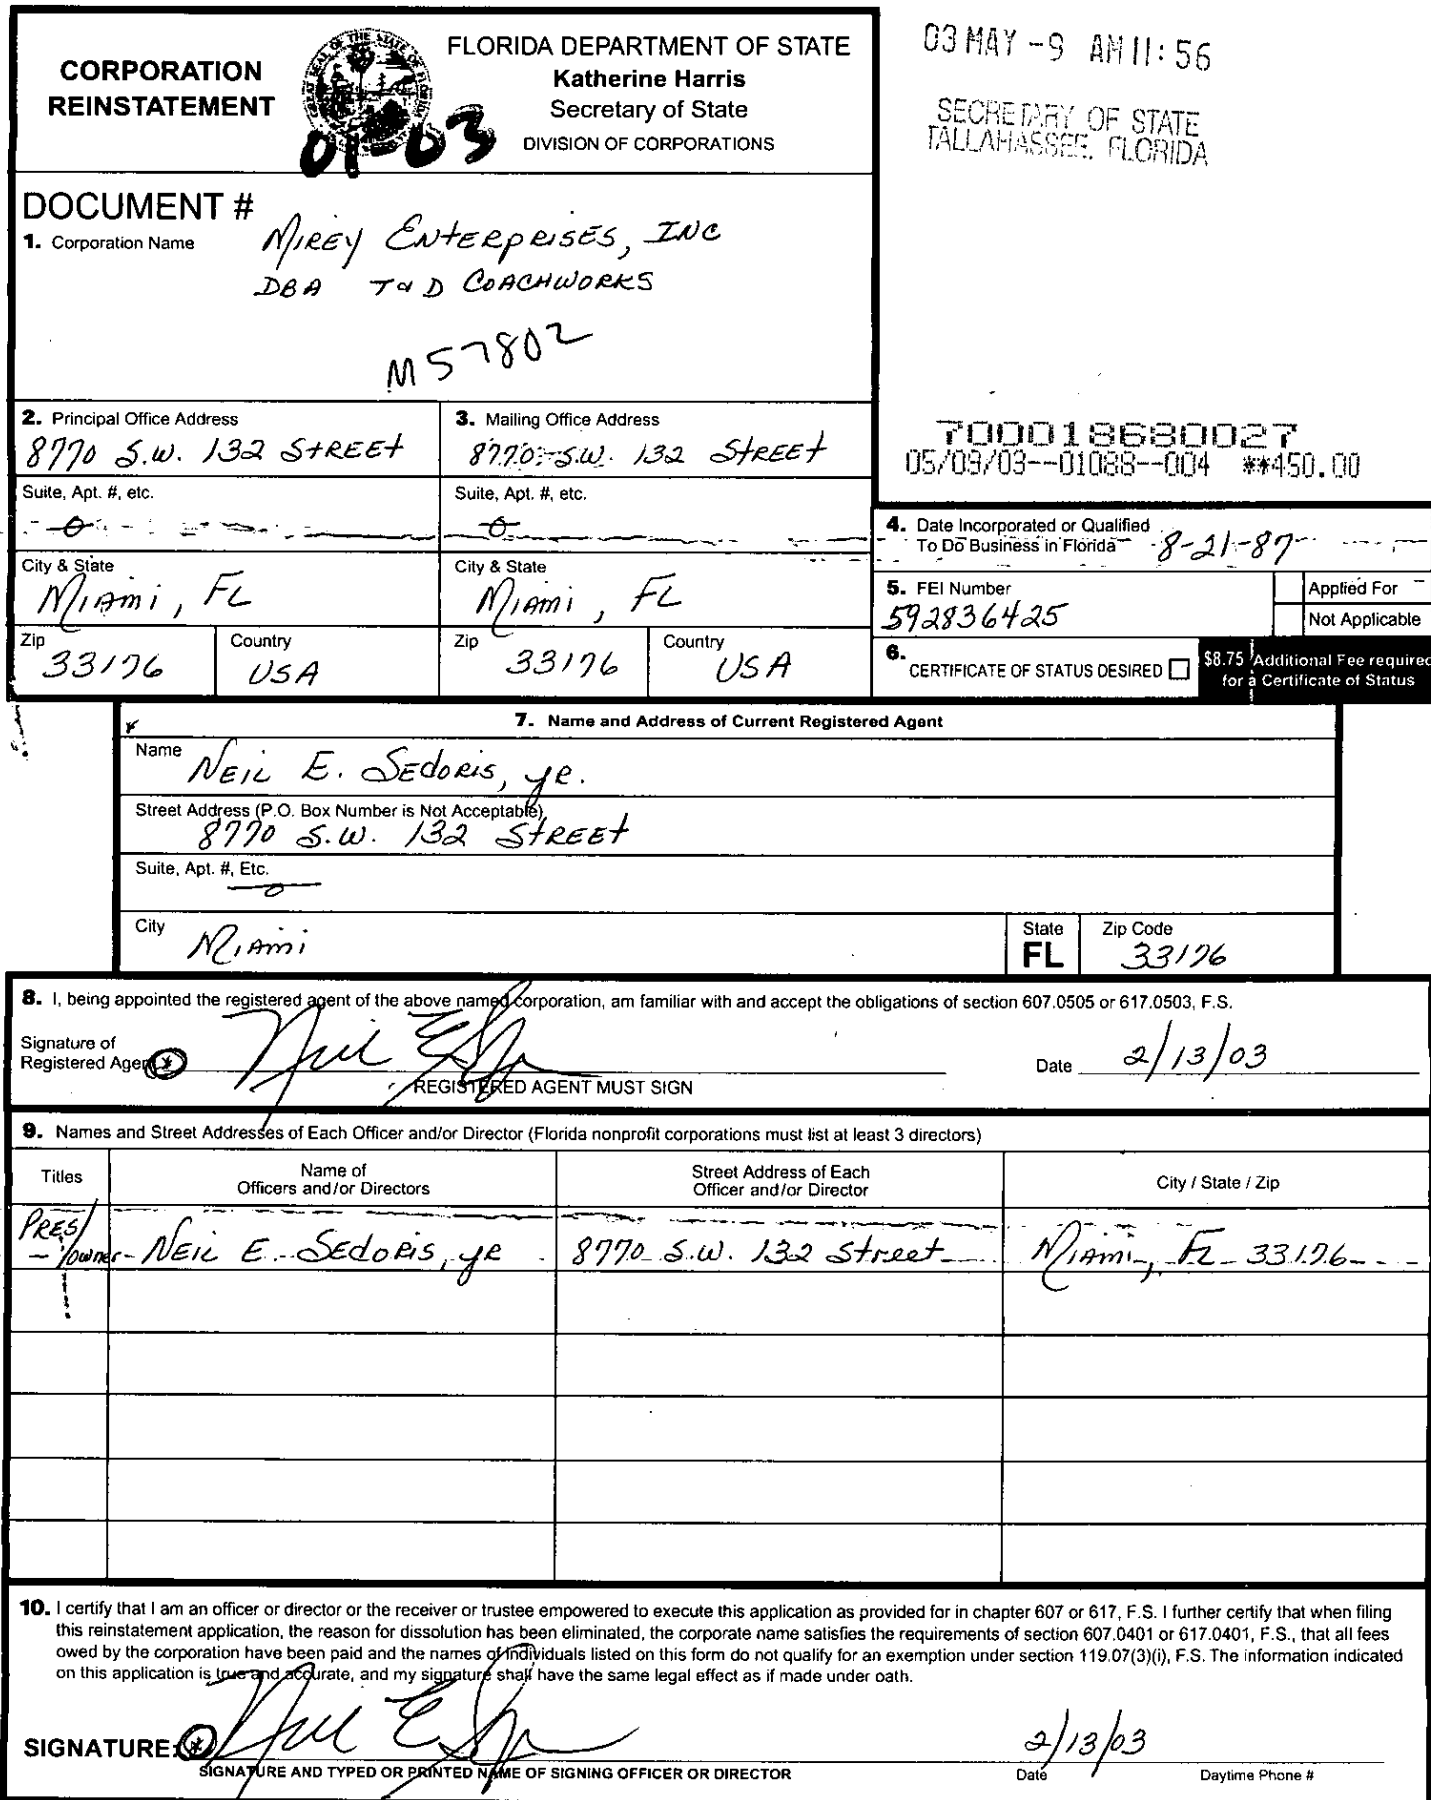 CORPORATION
REINSTATEMENT
FLORIDA DEPARTMENT OF STATE
Katherine Harris
Secretary of State
DIVISION OF CORPORATIONS
01-03
03 MAY -9 AM 11:56
SECRETARY OF STATE
TALLAHASSEE, FLORIDA
DOCUMENT #
1. Corporation Name
MIREY ENTERPRISES, INC
DBA T&D COACHWORKS
M57802
700018680027
05/09/03--01088--004 **450.00
2. Principal Office Address
8770 S.W. 132 STREET
3. Mailing Office Address
8770 S.W. 132 STREET
Suite, Apt. #, etc.
-0-
Suite, Apt. #, etc.
-0-
City & State
MIAMI, FL
City & State
MIAMI, FL
Zip
33176
Country
USA
Zip
33176
Country
USA
4. Date Incorporated or Qualified
To Do Business in Florida
8-21-87
5. FEI Number
592836425
Applied For
Not Applicable
6.
CERTIFICATE OF STATUS DESIRED
$8.75 Additional Fee required
for a Certificate of Status
7. Name and Address of Current Registered Agent
Name
NEIL E. SEDORIS, JR.
Street Address (P.O. Box Number is Not Acceptable)
8770 S.W. 132 STREET
Suite, Apt. #, Etc.
-0-
City
MIAMI
State
FL
Zip Code
33176
8. I, being appointed the registered agent of the above named corporation, am familiar with and accept the obligations of section 607.0505 or 617.0503, F.S.
Signature of
Registered Agent
REGISTERED AGENT MUST SIGN
Date 2/13/03
9. Names and Street Addresses of Each Officer and/or Director (Florida nonprofit corporations must list at least 3 directors)
Titles
Name of
Officers and/or Directors
Street Address of Each
Officer and/or Director
City / State / Zip
PRES/
owner
NEIL E. SEDORIS, JR
8770 S.W. 132 Street
MIAMI, FL 33176
10. I certify that I am an officer or director or the receiver or trustee empowered to execute this application as provided for in chapter 607 or 617, F.S. I further certify that when filing
this reinstatement application, the reason for dissolution has been eliminated, the corporate name satisfies the requirements of section 607.0401 or 617.0401, F.S., that all fees
owed by the corporation have been paid and the names of individuals listed on this form do not qualify for an exemption under section 119.07(3)(i), F.S. The information indicated
on this application is true and accurate, and my signature shall have the same legal effect as if made under oath.
SIGNATURE:
2/13/03
SIGNATURE AND TYPED OR PRINTED NAME OF SIGNING OFFICER OR DIRECTOR
Date
Daytime Phone #